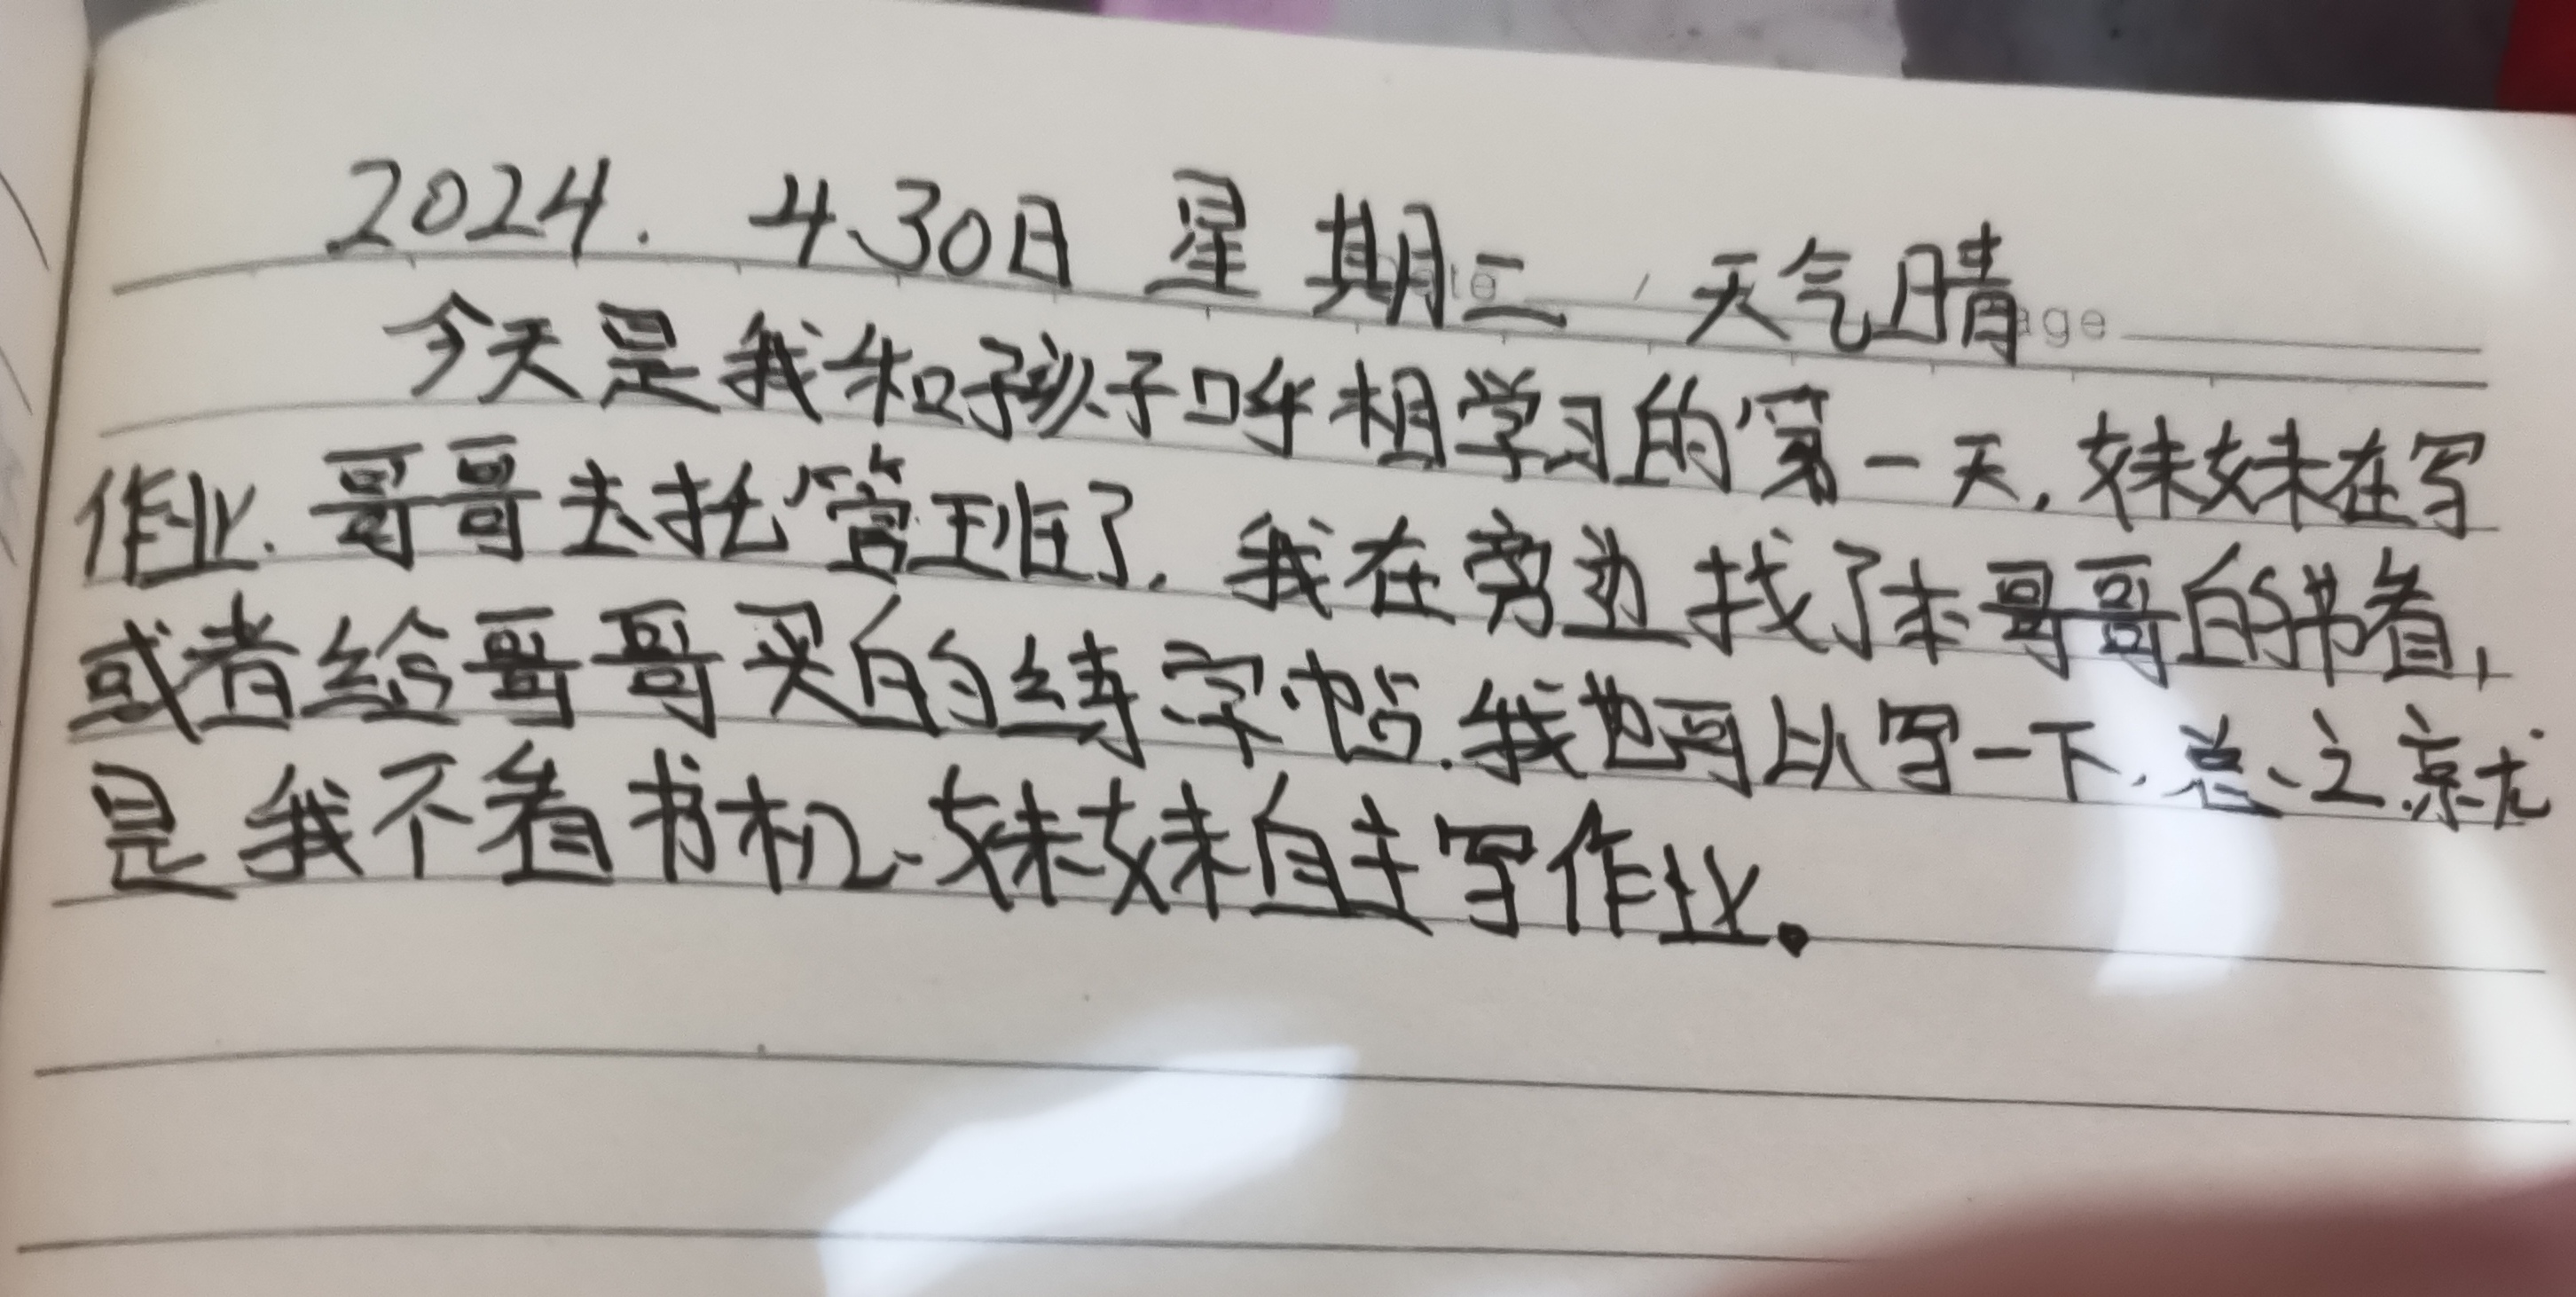 2024. 4.30日 星期二 天气晴
今天是我和孩子呼相学习的第一天,妹妹在写
作业.哥哥去托管班了.我在旁边找了本哥哥的书看,
或者给哥哥买的练字帖.我也可以写一下.总之就
是我不看书机.妹妹自主写作业.